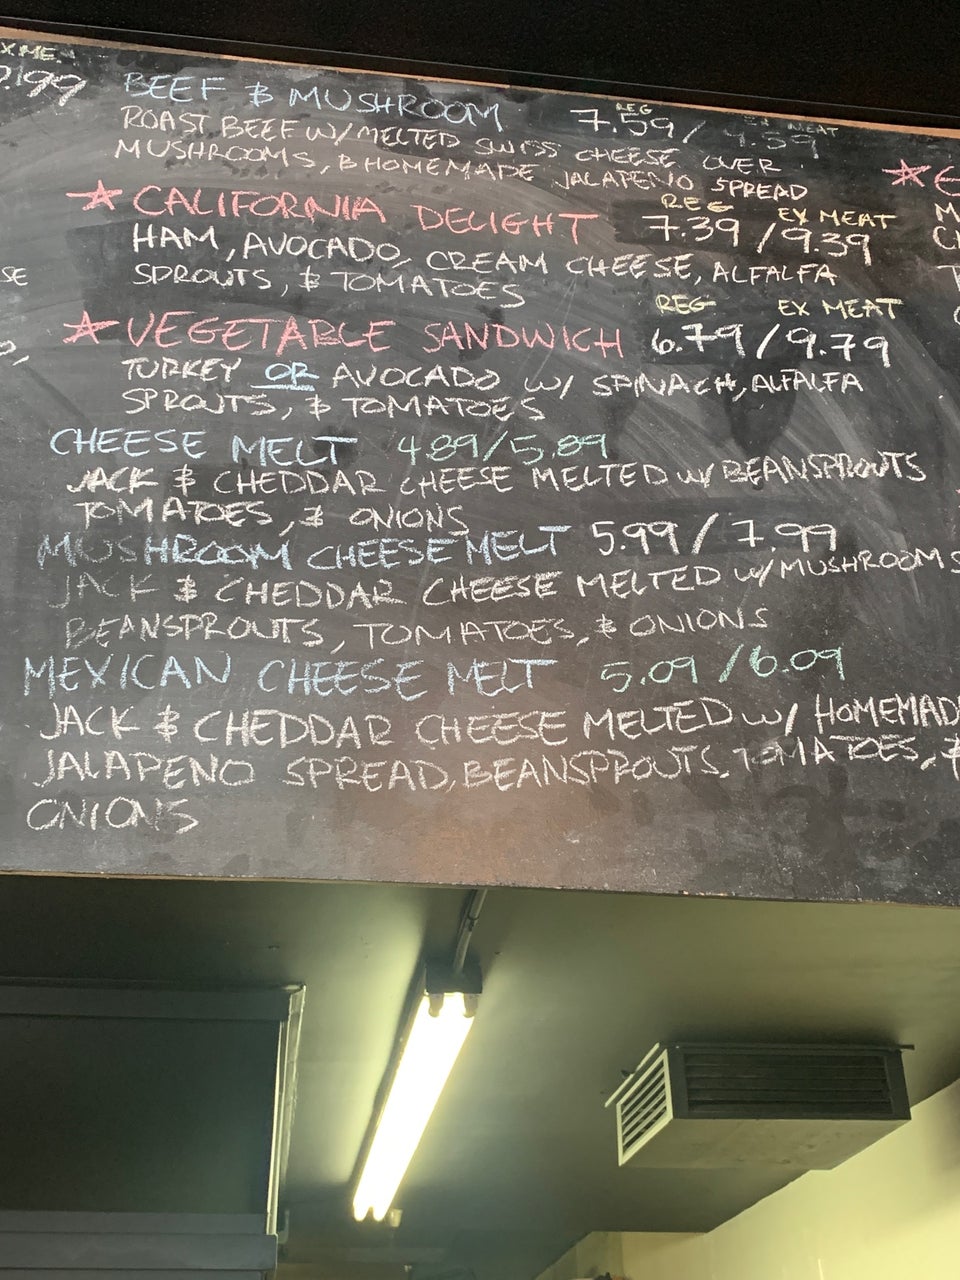 BEEF & MUSHROOM 7.59 / 9.59
REG EX MEAT
ROAST BEEF W/ MELTED SWISS CHEESE OVER
MUSHROOMS, & HOMEMADE JALAPENO SPREAD
REG EX MEAT
★ CALIFORNIA DELIGHT 7.39 / 9.39
HAM, AVOCADO, CREAM CHEESE, ALFALFA
SPROUTS, & TOMATOES
REG EX MEAT
★ VEGETABLE SANDWICH 6.79 / 9.79
TURKEY OR AVOCADO W/ SPINACH, ALFALFA
SPROUTS, & TOMATOES
CHEESE MELT 4.89/5.89
JACK & CHEDDAR CHEESE MELTED W/ BEANSPROUTS
TOMATOES, & ONIONS
MUSHROOM CHEESE MELT 5.99 / 7.99
JACK & CHEDDAR CHEESE MELTED W/ MUSHROOMS
BEANSPROUTS, TOMATOES, & ONIONS
MEXICAN CHEESE MELT 5.09 / 6.09
JACK & CHEDDAR CHEESE MELTED W/ HOMEMAD
JALAPENO SPREAD, BEANSPROUTS, TOMATOES, &
ONIONS